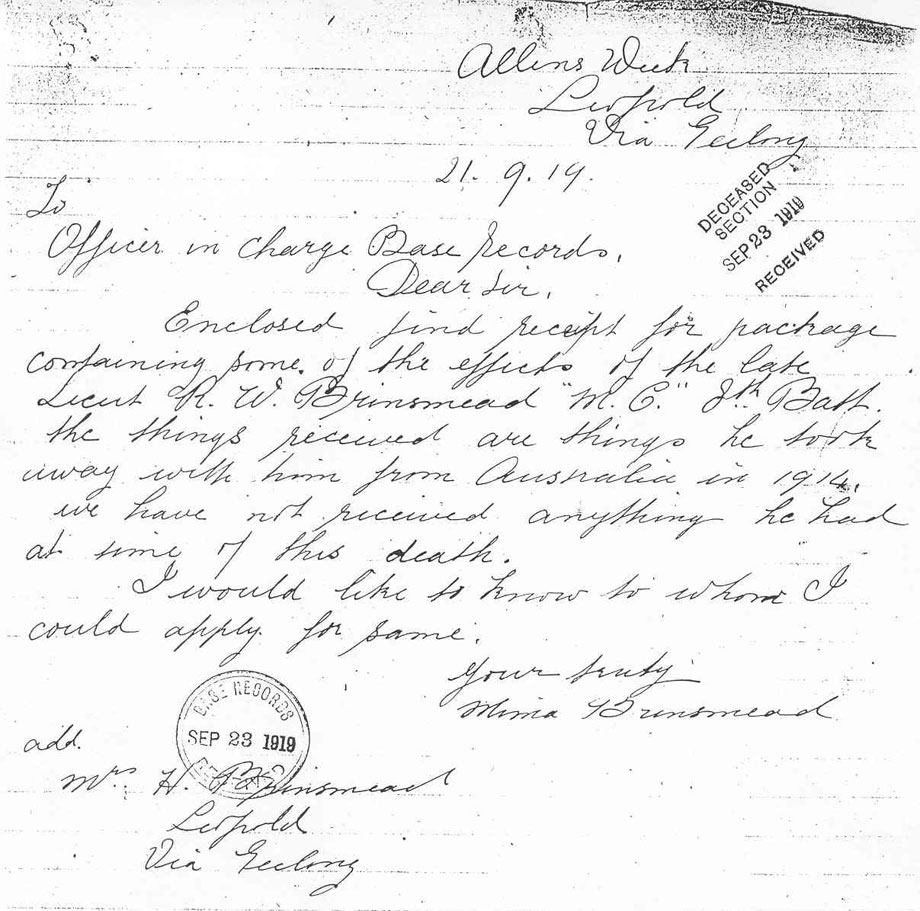 Allens Week
Leopold
Via Geelong
21. 9. 19.
To
Officer in Charge Base Records.
Dear Sir,
DECEASED
SECTION
SEP 23 1919
RECEIVED
Enclosed find receipt for package
containing some of the effects of the late
Lieut R. W. Brinsmead "M. C." 8th Batt.
the things received are things he took
away with him from Australia in 1914.
we have not received anything he had
at time of this death.
I would like to know to whom I
could apply for same.
Your truly
Mima Brinsmead
BASE RECORDS
SEP 23 1919
RECEIVED
add.
Mrs H. Brinsmead
Leopold
Via Geelong